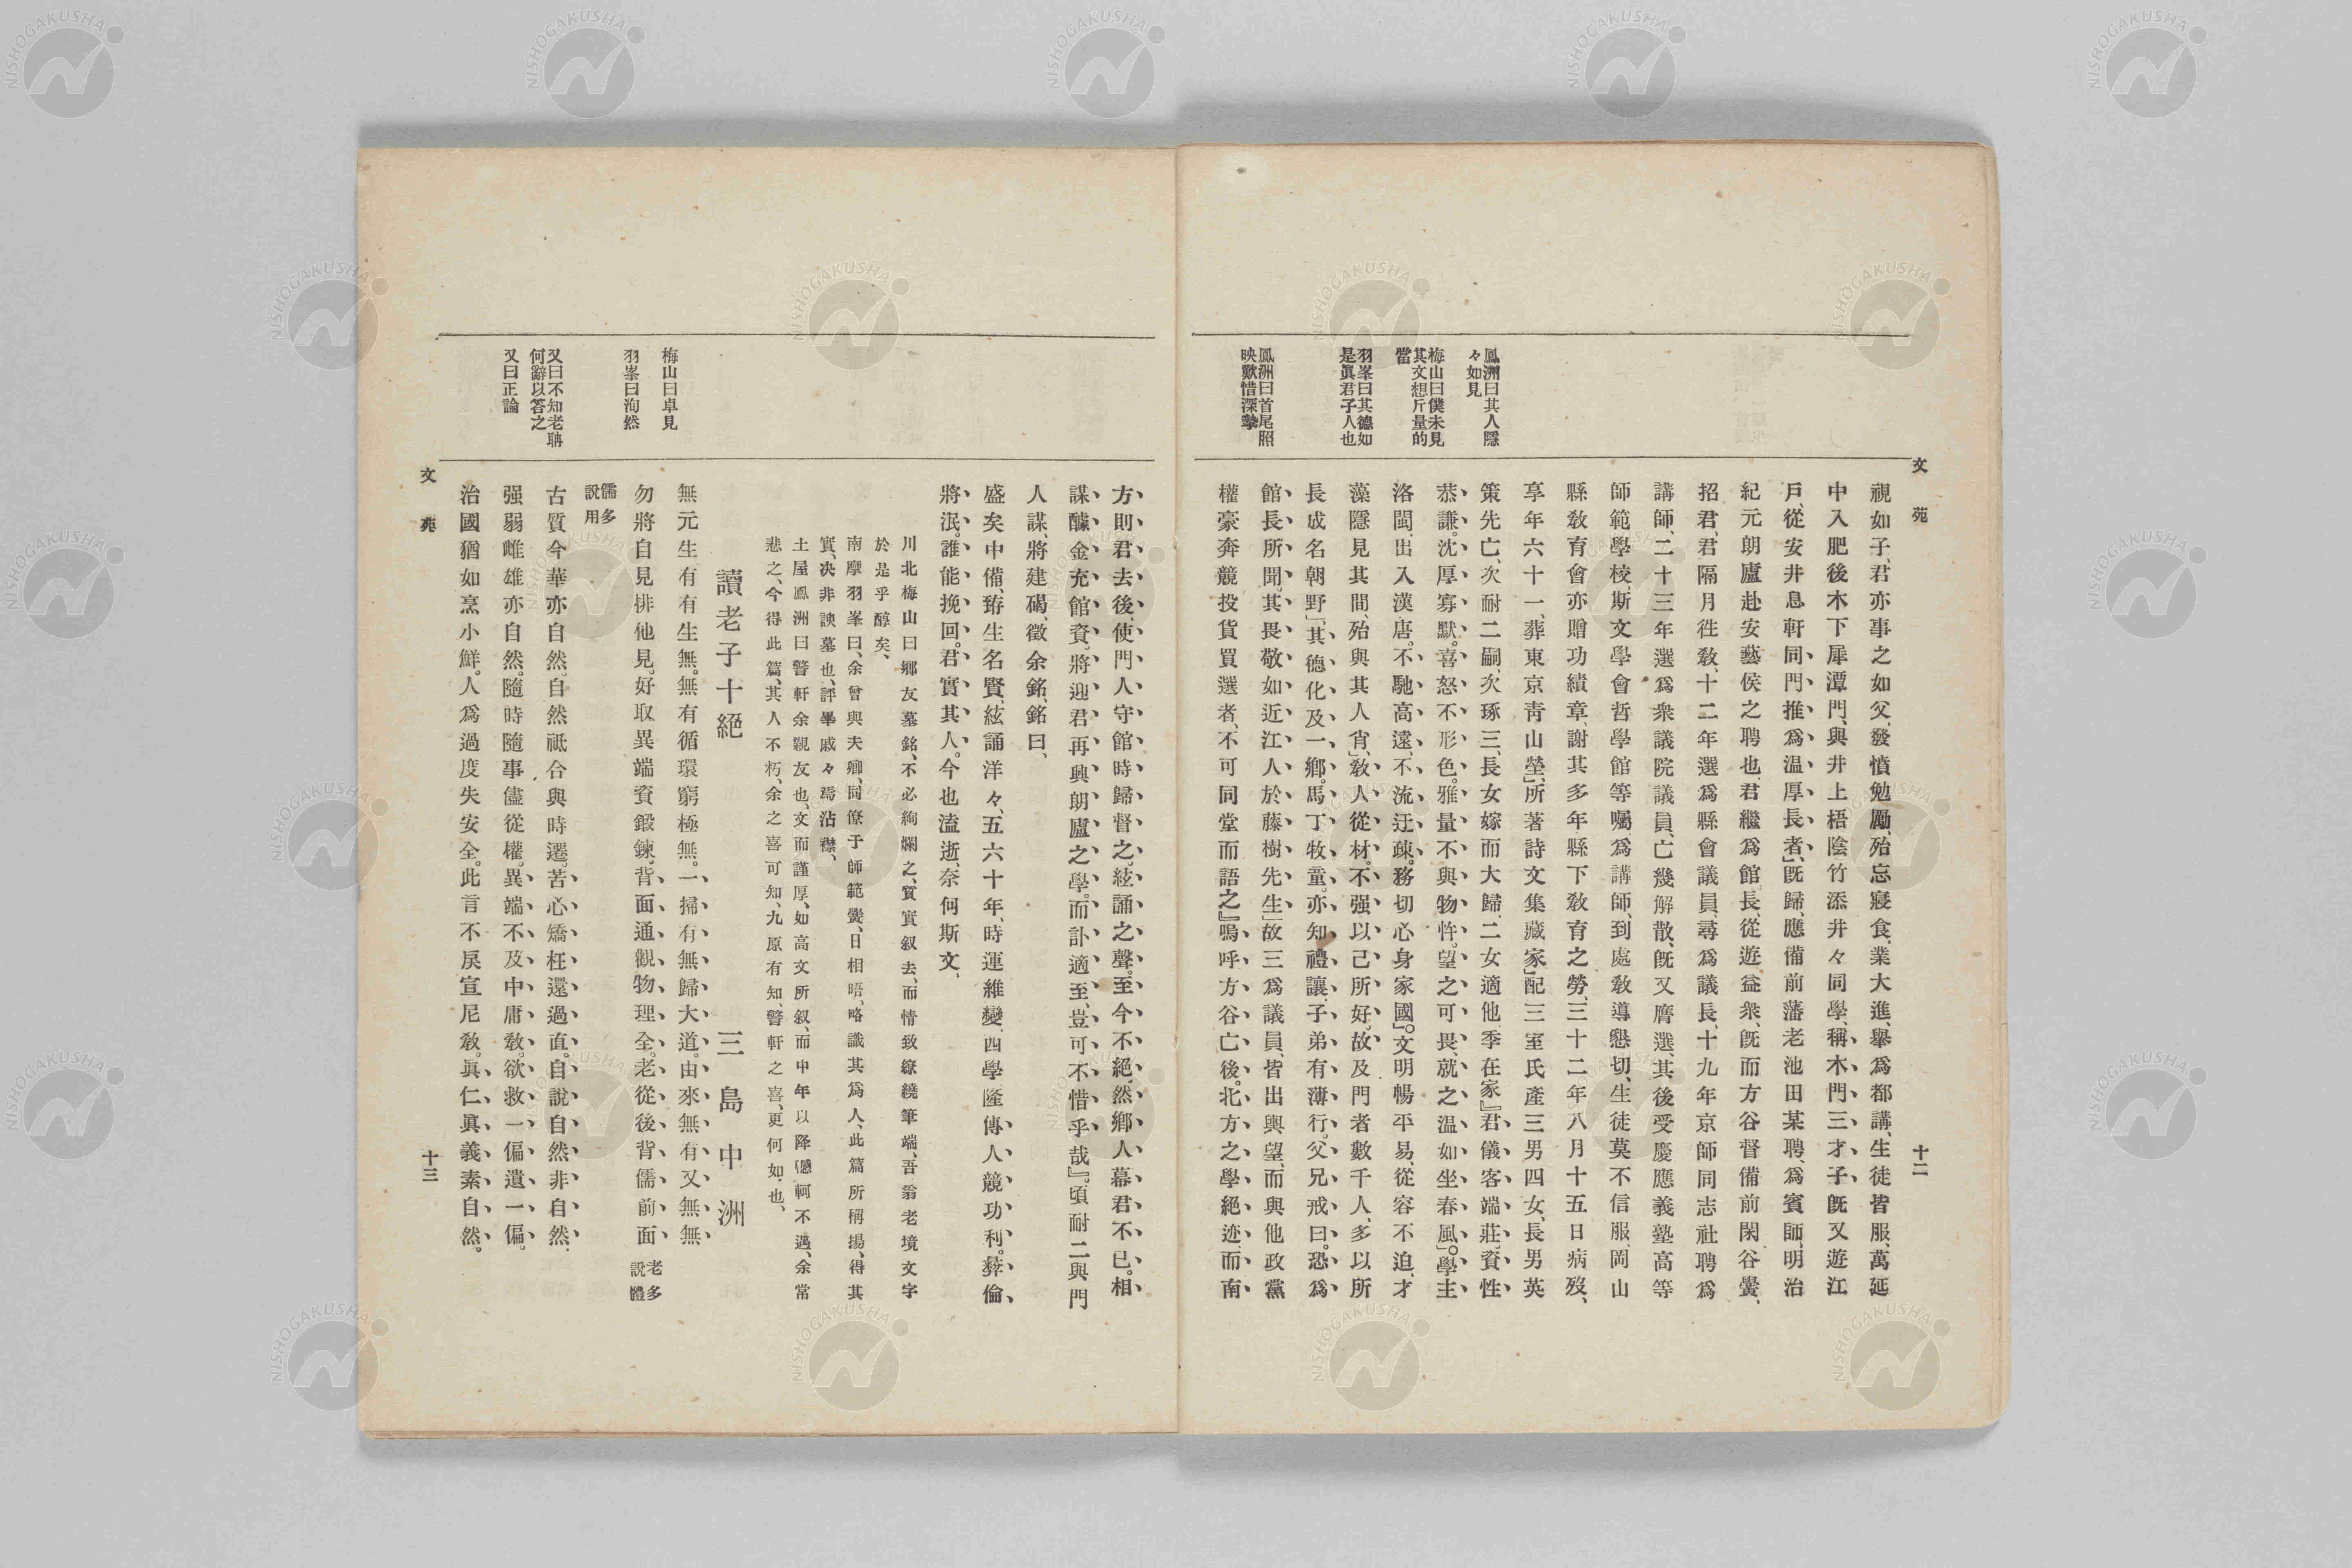 文苑
十二
鳳洲曰其人隱
々如見
梅山曰僕未見
其文想斤量的
當
羽峯曰其德如
是眞君子人也
鳳洲曰首尾照
映歎惜深摯
視如子、君亦事之如父、發憤勉勵、殆忘寢食、業大進、擧爲都講、生徒皆服、萬延
中入肥後木下犀潭門、與井上梧陰竹添井々同學、稱木門三才子、既又遊江
戶、從安井息軒、同門推爲温厚長者」、既歸、應備前藩老池田某聘、爲賓師、明治
紀元朗廬赴安藝侯之聘也、君繼爲館長、從遊益衆、既而方谷督備前閑谷黌、
招君、君隔月徃敎、十二年選爲縣會議員、尋爲議長、十九年京師同志社聘爲
講師、二十三年選爲衆議院議員、亡幾解散、既又膺選、其後受慶應義塾高等
師範學校、斯文學會哲學館等囑、爲講師、到處敎導懇切、生徒莫不信服、岡山
縣敎育會亦贈功績章、謝其多年縣下敎育之勞、三十二年八月十五日病歿、
享年六十一、葬東京靑山塋」、所著詩文集藏家」配三室氏產三男四女、長男英
策先亡、次耐二嗣、次琢三、長女嫁而大歸、二女適他、季在家』君儀客端莊、資性
恭謙。沈厚寡默。喜怒不形色。雅量不與物忤。望之可畏、就之温如坐春風」。學主
洛閩、出入漢唐。不馳高遠、不流迂疎。務切心身家國』。文明暢平易、從容不迫、才
藻隱見其間、殆與其人肖」、敎人從材。不强以己所好。故及門者數千人、多以所
長成名朝野」、其德化及一鄕。馬丁牧童。亦知禮讓、子弟有薄行。父兄戒曰。恐爲
館長所聞。其畏敬如近江人於藤樹先生」故三爲議員、皆出輿望、而與他政黨
權豪奔競投貨買選者、不可同堂而語之』嗚呼方谷亡後。北方之學絕迹、而南
梅山曰卓見
羽峯曰洵然
又曰不知老聃
何辭以答之
又曰正論
文苑
十三
方則君去後、使門人守館時歸督之。絃誦之聲。至今不絕、然鄕人慕君不已。相
謀醵金充館資。將迎君再興朗廬之學。而訃適至、豈可不惜乎哉』。頃耐二與門
人謀、將建碣、徵余銘、銘曰、
盛矣中備、㻞生名賢、絃誦洋々、五六十年、時運維變、四學隆傳、人競功利。彜倫
將泯。誰能挽回。君實其人。今也溘逝、奈何斯文、
川北梅山曰鄕友墓銘、不必絢爛之、質實叙去、而情致繚繞筆端、吾翁老境文字
於是乎醇矣、
南摩羽峯曰、余曾與夫卿、同僚于師範黌、日相晤、略識其爲人、此篇所稱揚、得其
實、决非諛墓也、評畢戚々焉沾襟、
土屋鳳洲曰警軒余親友也、文而謹厚、如高文所叙、而中年以降轗軻不遇、余常
悲之、今得此篇、其人不朽、余之喜可知、九原有知、警軒之喜、更何如也、
讀老子十絕　三島中洲
無元生有有生無。無有循環窮極無。一掃有無歸大道。由來無有又無無
勿將自見排他見。好取異端資鍛鍊。背面通觀物理全。老從後背儒前面 老多說體
儒多說用
古質今華亦自然。自然祗合與時遷。苦心矯枉還過直。自說自然非自然。
强弱雌雄亦自然。隨時隨事儘從權。異端不及中庸敎。欲救一偏遺一偏。
治國猶如烹小鮮。人爲過度失安全。此言不戾宣尼敎。眞仁眞義素自然。